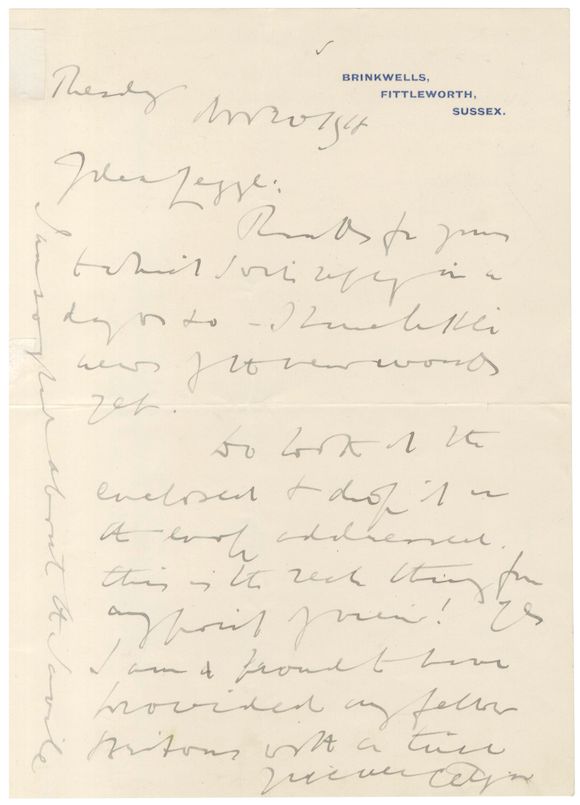 BRINKWELLS,
FITTLEWORTH,
SUSSEX.
My dear Legge:
Thanks for yours
to which I will reply in a
day or so - I have little
news of the new words
yet.
Do look at the
enclosed & drop it in
the envelope addressed.
this is the real thing from
my point of view! Yes
I am proud to have
provided my fellow
Britons with a tune
Yours ever
I am so glad about the Savile